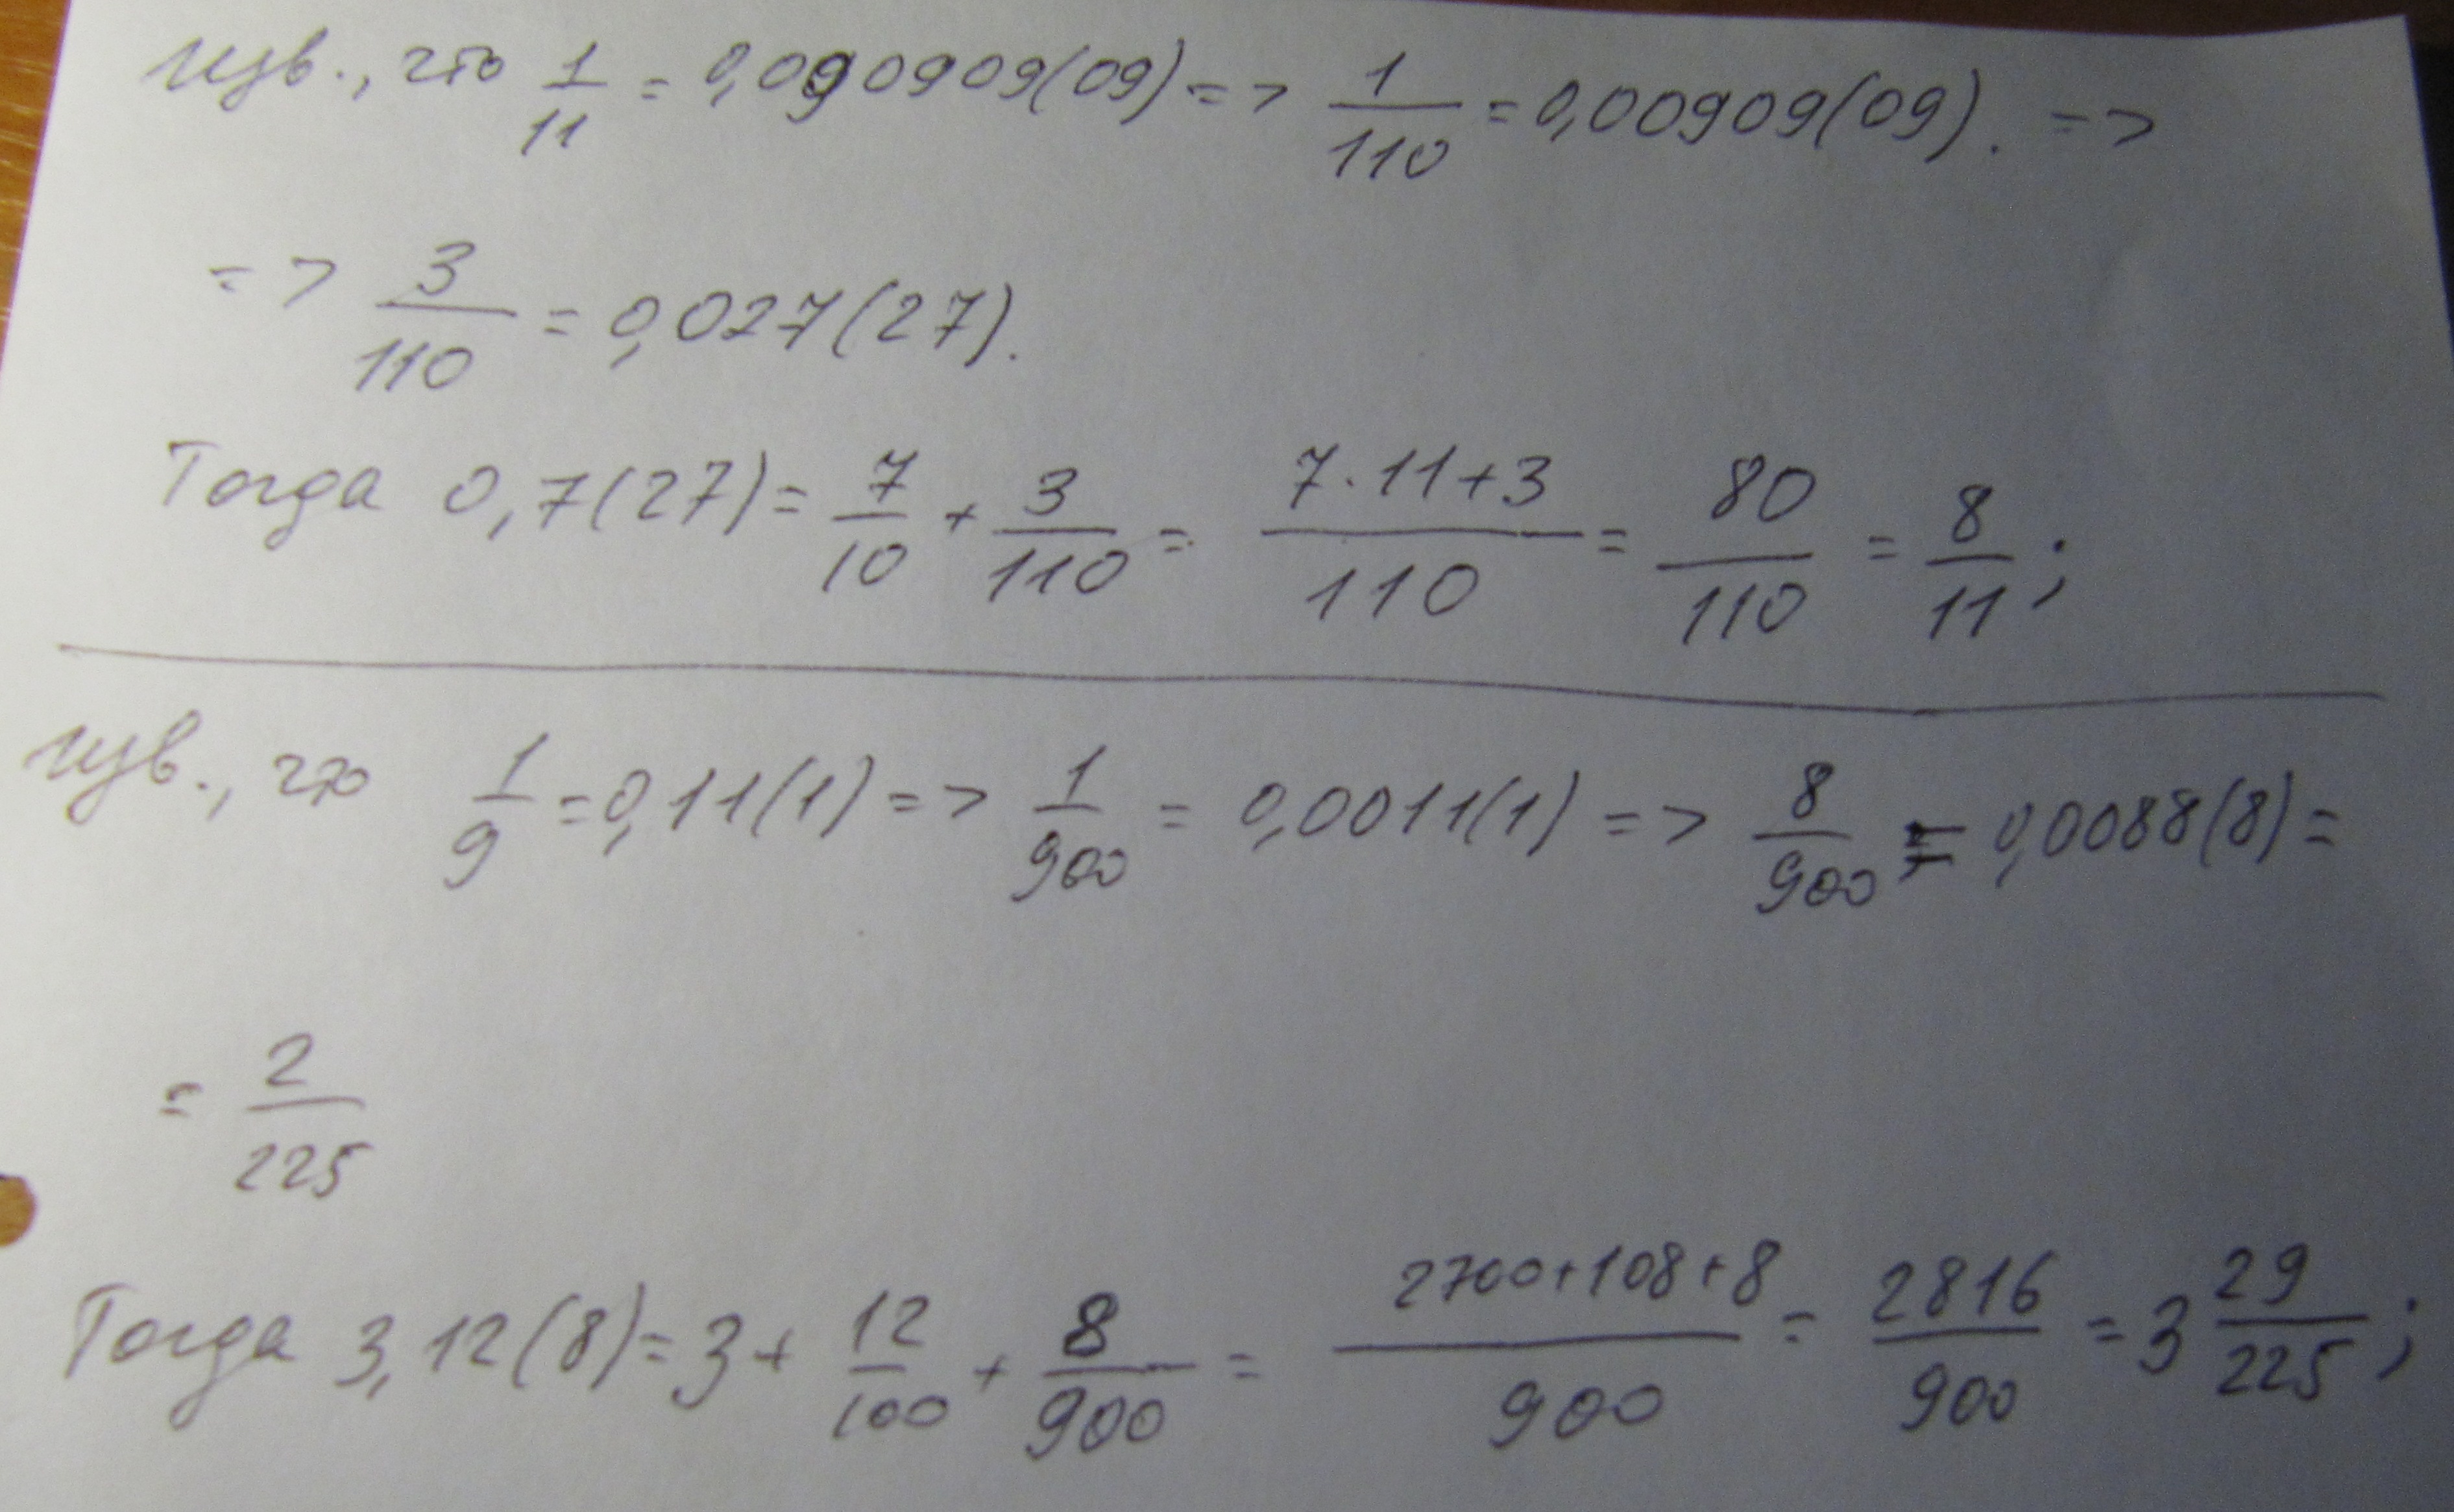 Изв., что 1/11 = 0,0909090 9(09) => 1/110 = 0,00909(09). =>
=> 3/110 = 0,027(27).
Тогда 0,7(27) = 7/10 + 3/110 = (7·11+3)/110 = 80/110 = 8/11;
Изв., что 1/9 = 0,11(1) => 1/900 = 0,0011(1) => 8/900 = 0,0088(8) =
= 2/225
Тогда 3,12(8) = 3 + 12/100 + 8/900 = (2700+108+8)/900 = 2816/900 = 3 29/225;